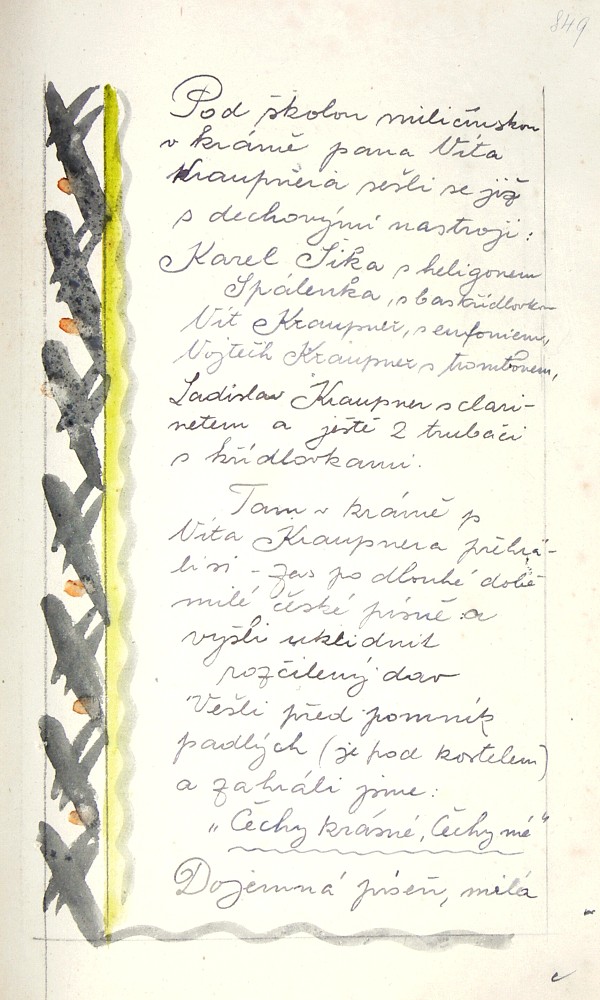 849
Pod školou miličínskou
v krámě pana Víta
Kraupnera sešli se již
s dechovými nastroji:
Karel Šika s heligonem
Spálenka, s baskřídlovkou
Vít Kraupner, s eufoniem,
Vojtěch Kraupner s trombonem,
Ladislav Kraupner s clari-
netem a ještě 2 trubači
s křídlovkami.
Tam v krámě p
Víta Kraupnera přehrá-
li si - zas po dlouhé době
milé české písně a
vyšli uklidnit
rozčilený dav
Vešli před pomník
padlých (je pod kostelem)
a zahráli jsme:
„Čechy krásné, Čechy mé"
Dojemná píseň, milá